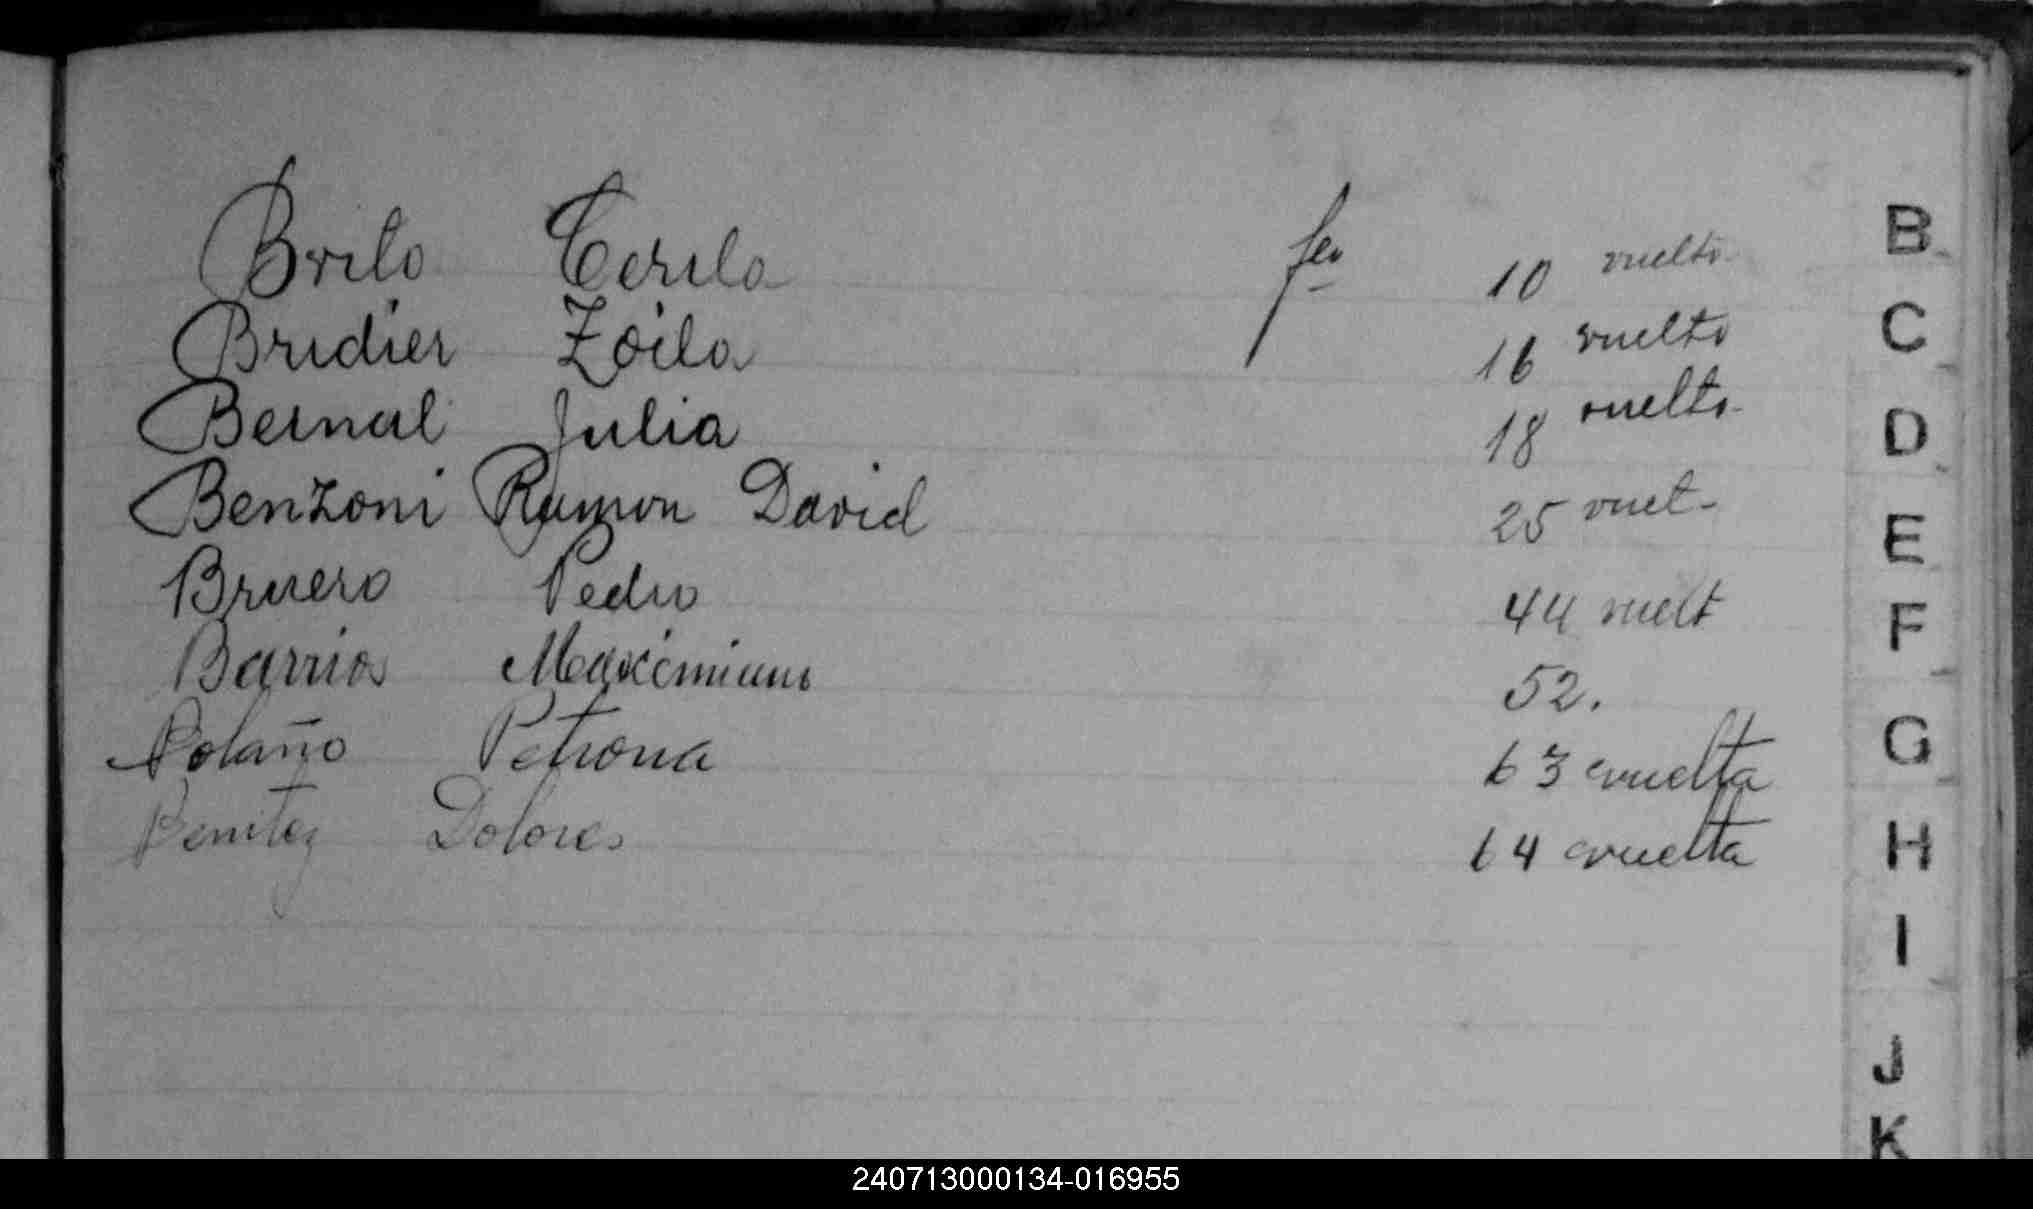 Brito Cerila fco 10 vuelto
Bridier Zoila 16 vuelto
Bernal Julia 18 vuelto
Benzoni Ramon David 25 vuel-
Bruero Pedro 44 vuelt
Barrios Maximiano 52.
Bolaño Petrona 63 vuelta
Benitez Dolores 64 vuelta
B
C
D
E
F
G
H
I
J
K
240713000134-016955